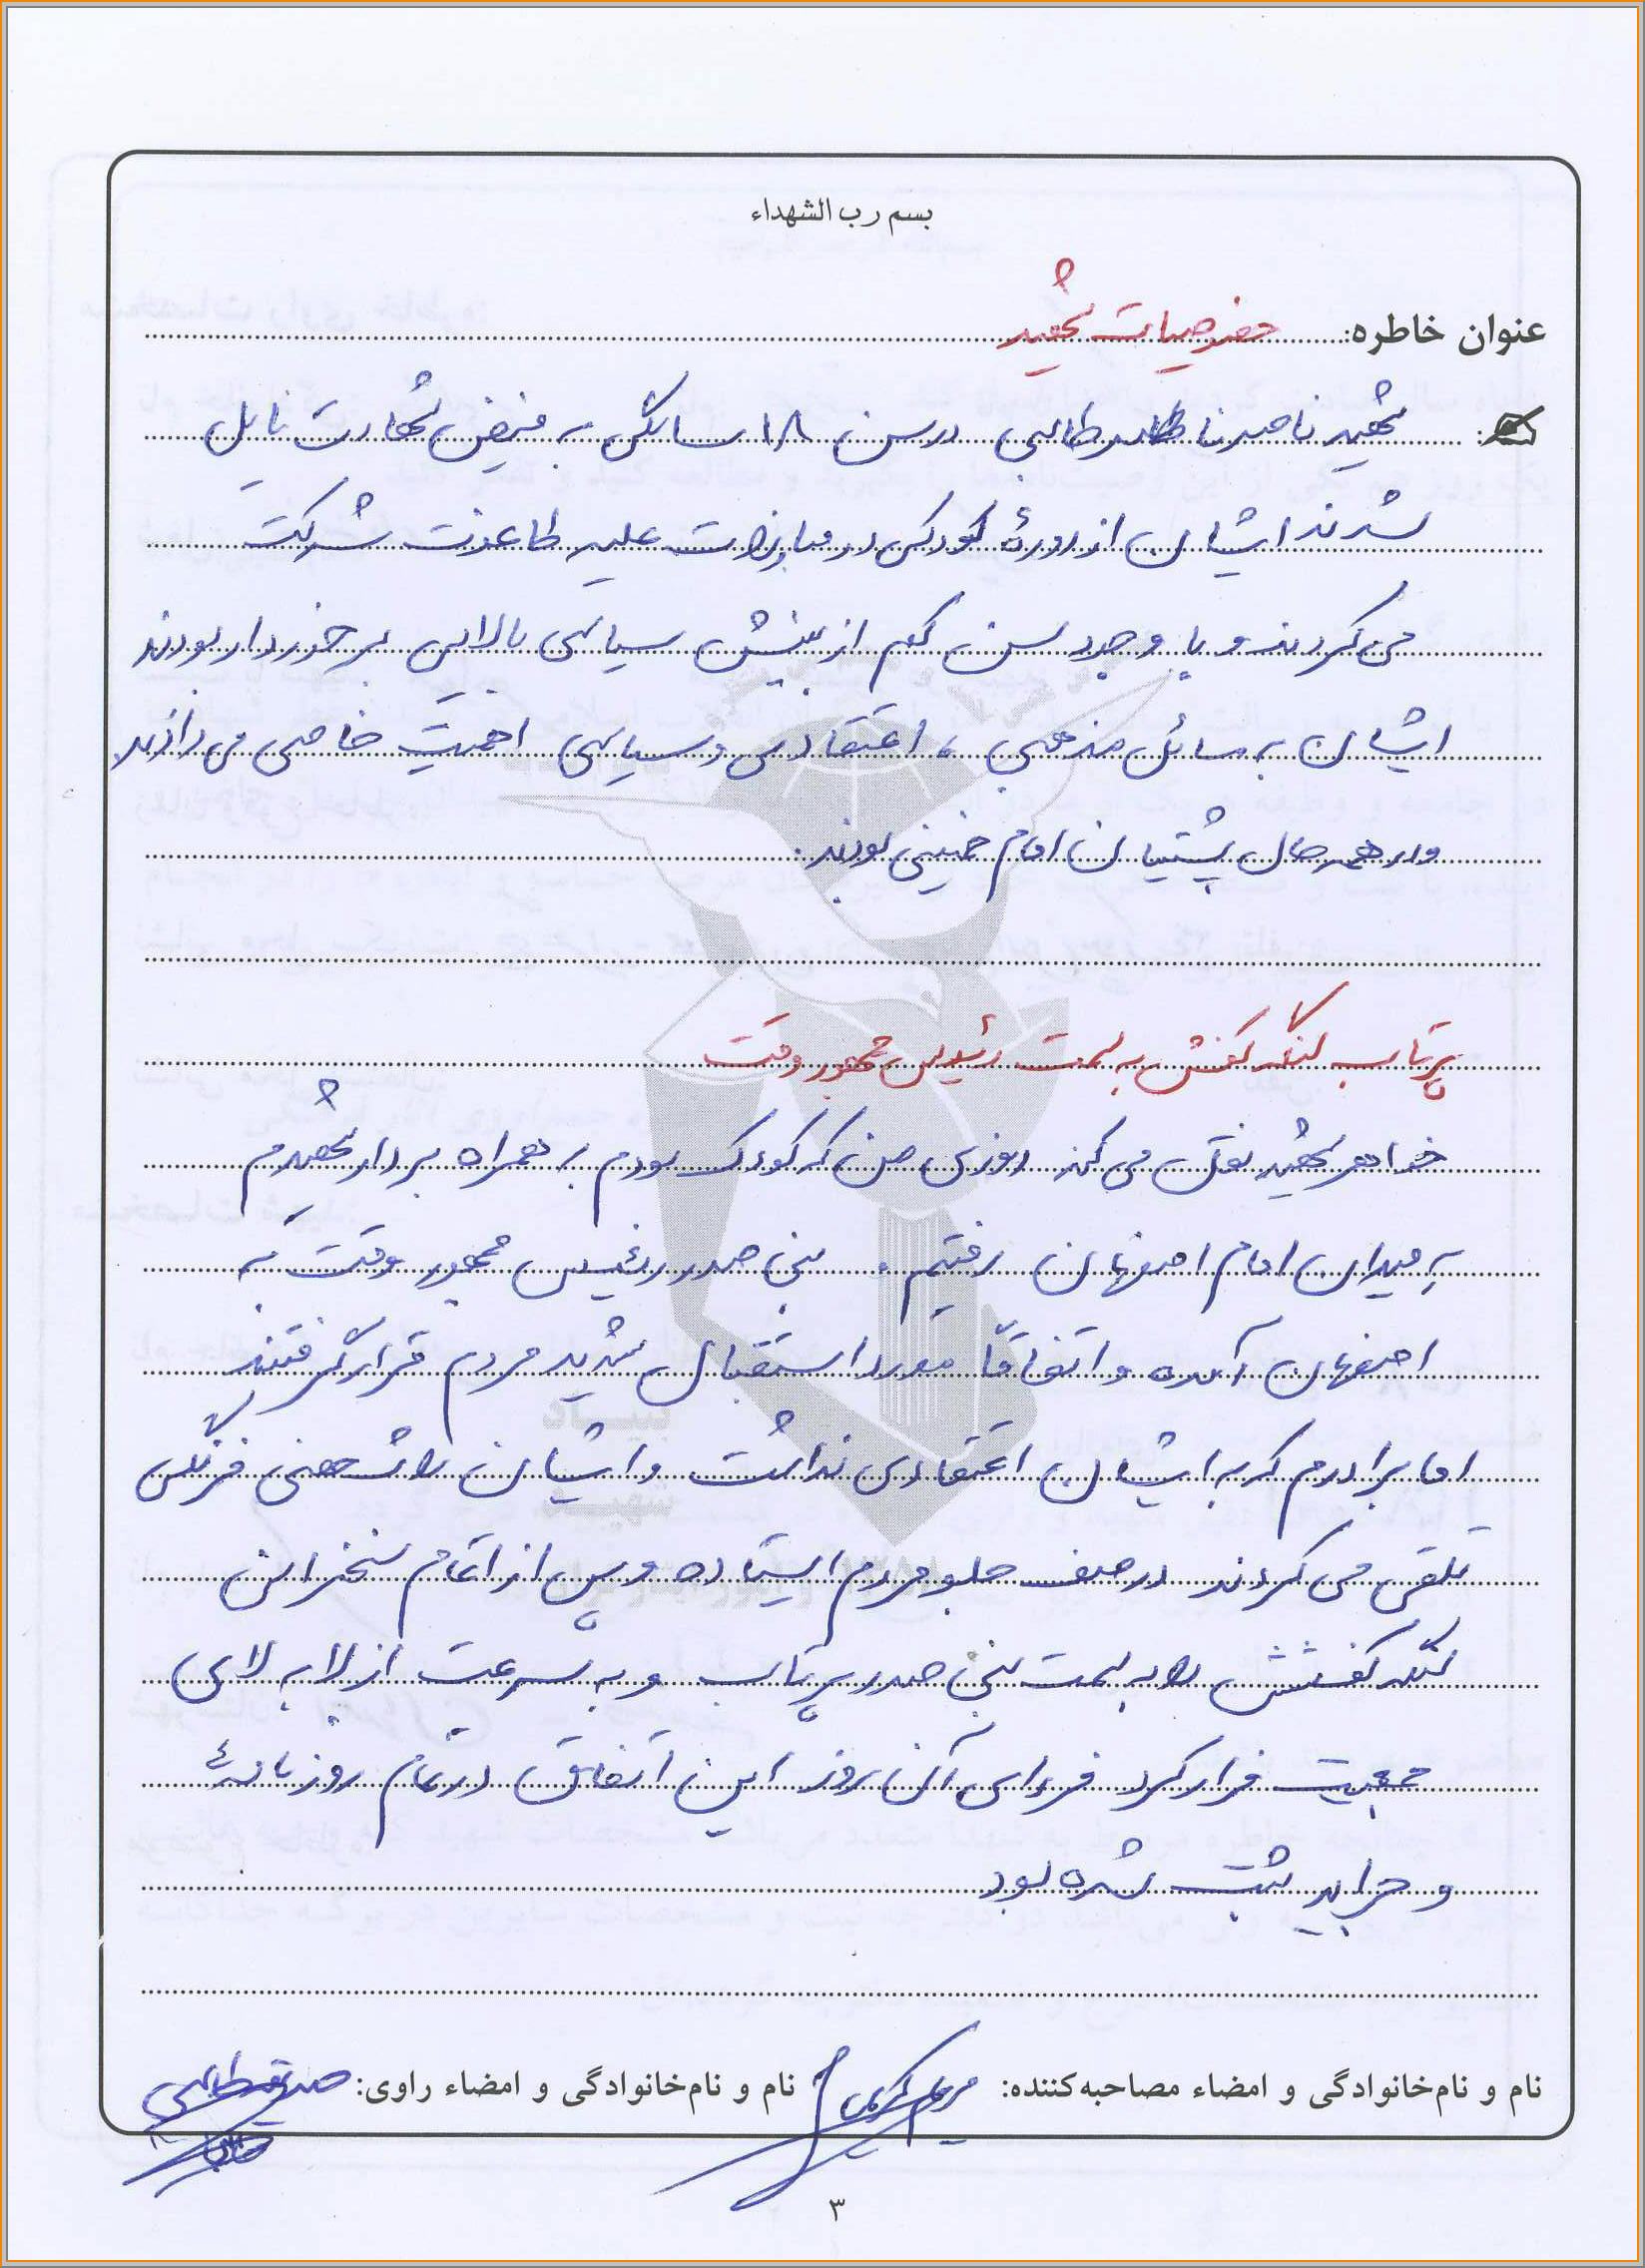 بسم رب الشهداء
عنوان خاطره: خصوصیات شهید
شهید ناصر طالبی در سن ۱۸ سالگی به فیض شهادت نایل
شدند ایشان از دورهٔ کودکی در مبارزات علیه طاغوت شرکت
می کردند و با وجود سن کم از بینش سیاسی بالایی برخوردار بودند
ایشان به مسائل مذهبی، اعتقادی و سیاسی اهمیت خاصی می دادند
و در همه حال پشتیبان امام خمینی بودند.
پرتاب لنگه کفش به سمت رئیس جمهور وقت
خواهر شهید نقل می کند روزی من که کودک بودم به همراه بردار شهیدم
به میدان امام اصفهان رفتیم. بنی صدر رئیس جمهور وقت به
اصفهان آمده و اتفاقاً مورد استقبال شدید مردم قرار گرفتند
اما برادرم که به ایشان اعتقادی نداشت و ایشان را شخصی فرنگی
تلقی می کردند در صف جلو مردم ایستاده و پس از اتمام سخنرانی
لنگه کفشش را به سمت بنی صدر پرتاب و به سرعت از لا به لای
جمعیت فرار کرد فردای آن روز این اتفاق در تمام روزنامهٔ
و جراید ثبت شده بود
نام و نام‌خانوادگی و امضاء مصاحبه‌کننده: مریم نام و نام‌خانوادگی و امضاء راوی: صدیقه طالبی
۳